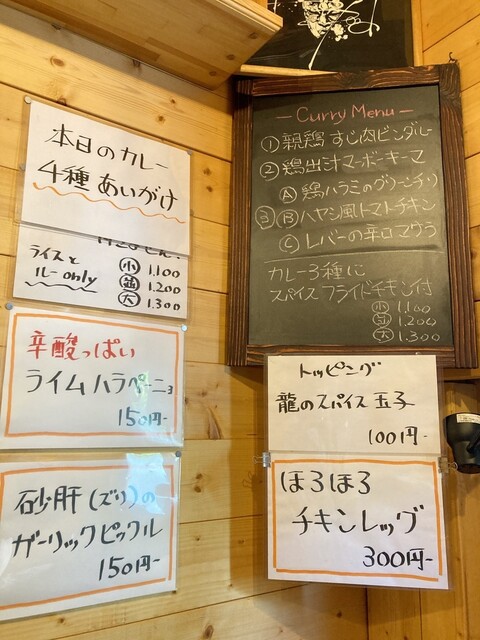 本日のカレー
4種あいがけ
ライスと
ルーonly
小 1.100
並 1.200
大 1.300
辛酸っぱい
ライムハラペーニョ
150円-
砂肝(ズリ)の
ガーリックピックル
150円-
- Curry Menu -
① 親鶏 すじ肉ビンダルー
② 鶏出汁マーボーキーマ
Ⓐ 鶏ハラミのグリーンチリ
③ Ⓑ ハヤシ風トマトチキン
Ⓒ レバーの辛口マサラ
カレー3種に
スパイスフライドチキン付
小 1.100
並 1.200
大 1.300
トッピング
龍のスパイス玉子
100円-
ほろほろ
チキンレッグ
300円-